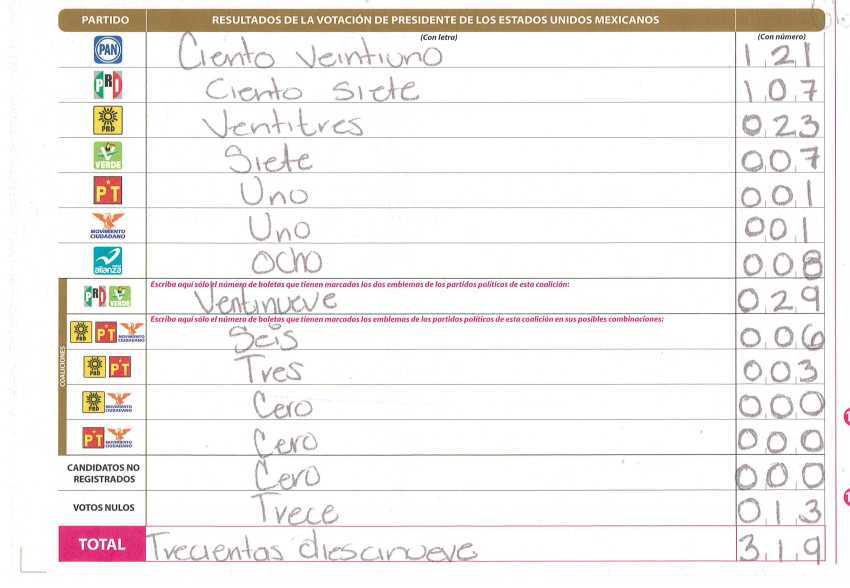 PARTIDO RESULTADOS DE LA VOTACIÓN DE PRESIDENTE DE LOS ESTADOS UNIDOS MEXICANOS
(Con letra) (Con número)
PAN Ciento veintiuno 121
PRD Ciento Siete 107
PRD Ventitres 023
VERDE Siete 007
PT Uno 001
MOVIMIENTO CIUDADANO Uno 001
alianza Ocho 008
COALICIONES
Escriba aquí sólo el número de boletas que tienen marcados los dos emblemas de los partidos políticos de esta coalición:
PRD VERDE Ventinueve 029
Escriba aquí sólo el número de boletas que tienen marcados los emblemas de los partidos políticos de esta coalición en sus posibles combinaciones:
PRD PT MOVIMIENTO CIUDADANO Seis 006
PRD PT Tres 003
PRD MOVIMIENTO CIUDADANO Cero 000
PT MOVIMIENTO CIUDADANO Cero 000
CANDIDATOS NO REGISTRADOS Cero 000
VOTOS NULOS Trece 013
TOTAL Trecientas diescinueve 319